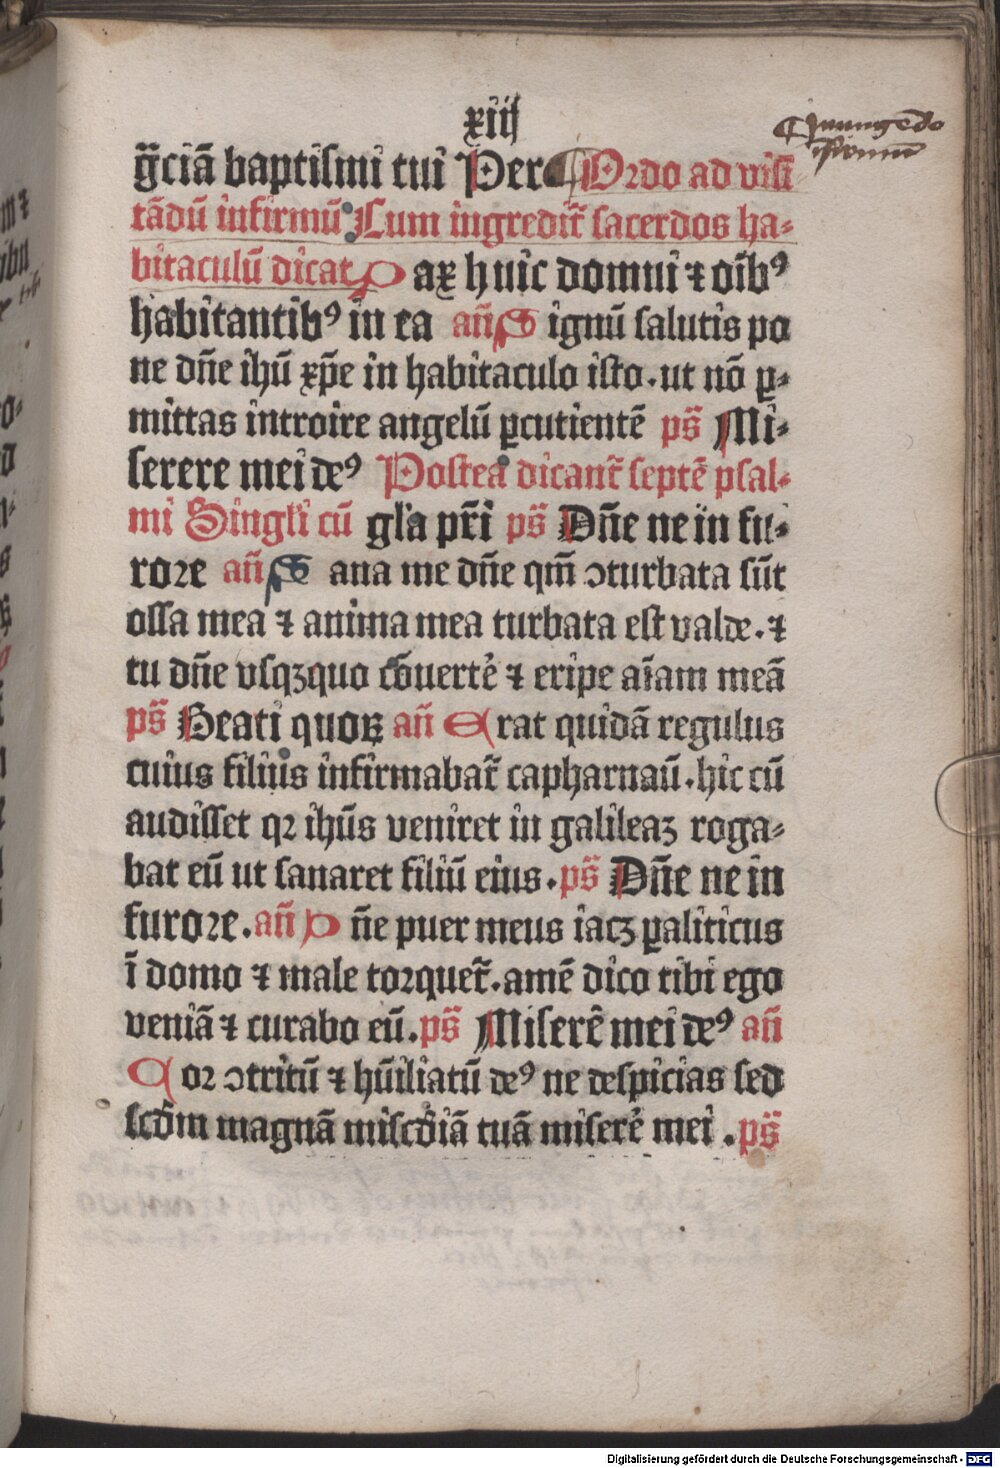 xiij
g̃ciā baptismi tui Per Ordo ad visi
tādū infirmū Cum ingredit̃ sacerdos ha-
bitaculū dicat Pax huic domui ⁊ oīb⁹
habitantib⁹ in ea an̄ Signū salutis po
ne dn̄e ihū xp̄e in habitaculo isto. ut nō ꝑ-
mittas introire angelū ꝑcutientē ps̄ Mi-
serere mei de⁹ Postea dicant̃ septē psal-
mi Singl̄i cū gl̄a pr̄i ps̄ Dn̄e ne in fu-
rore an̄ Sana me dn̄e qm̄ ↄturbata sūt
ossa mea ⁊ anima mea turbata est valde. ⁊
tu dn̄e vsqꝫquo cōuertẽ ⁊ eripe aīam meā
ps̄ Beati quoꝝ an̄ Erat quidā regulus
cuius filius infirmabat̃ capharnaū. hic cū
audisset qꝛ ihūs veniret in galileaꝫ roga-
bat eū ut sanaret filiū eius. ps̄ Dn̄e ne in
furore. an̄ Dn̄e puer meus iacꝫ ꝑaliticus
ī domo ⁊ male torquet̃. amē dico tibi ego
veniā ⁊ curabo eū. ps̄ Miserē mei de⁹ an̄
Cor ↄtritū ⁊ hūiliatū de⁹ ne despicias sed
scd̄m magnā miscd̄iā tuā miserē mei . ps̄
Digitalisierung gefördert durch die Deutsche Forschungsgemeinschaft - DFG